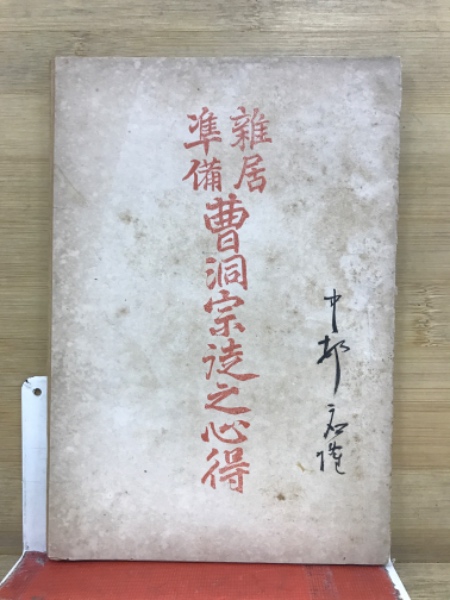 雑居
準備
曹洞宗徒之心得
中部